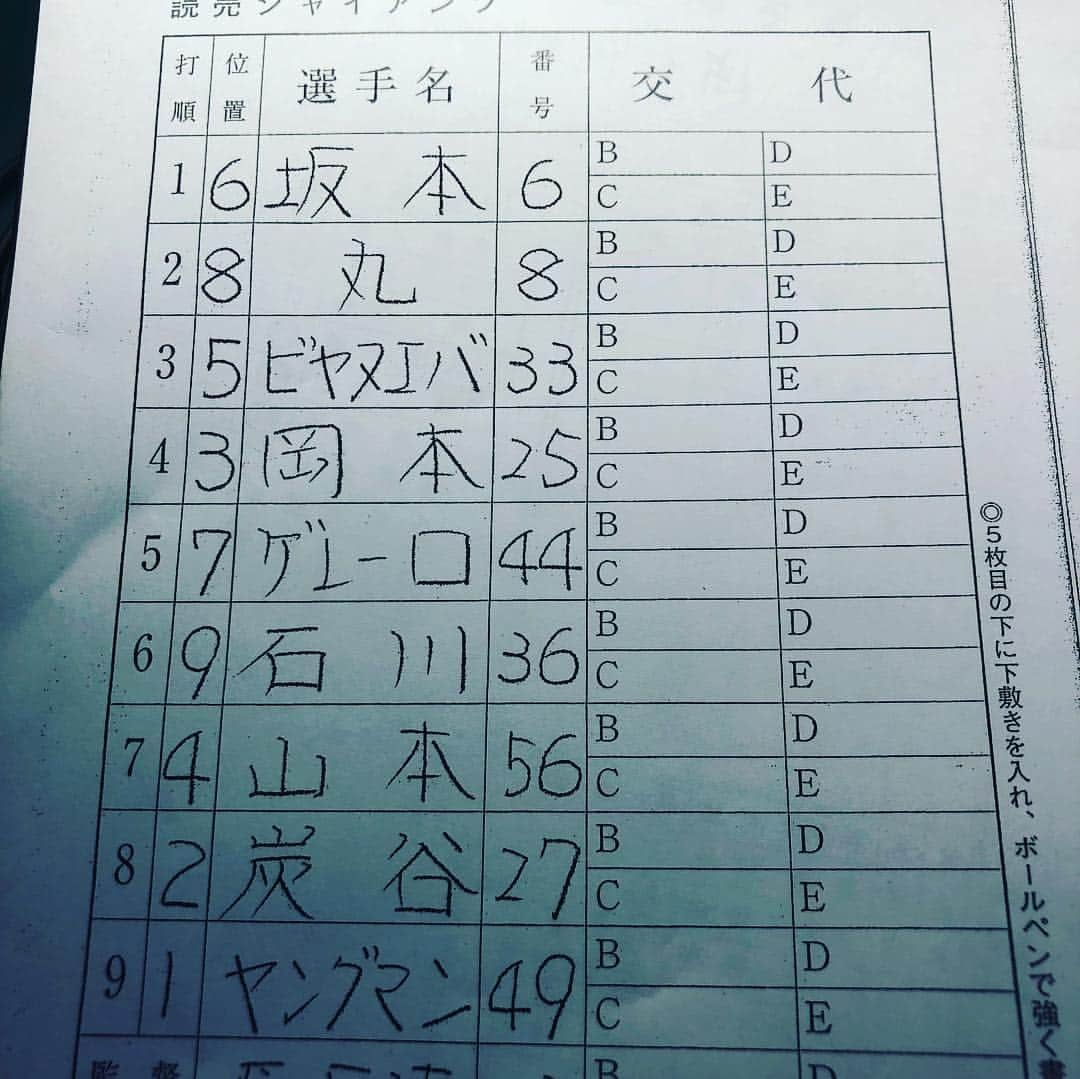 読売ジャイアンツ
打順 位置 選手名 番号 交代
1 6 坂本 6 B D
C E
2 8 丸 8 B D
C E
3 5 ビヤヌエバ 33 B D
C E
4 3 岡本 25 B D
C E
5 7 ゲレーロ 44 B D
C E
6 9 石川 36 B D
C E
7 4 山本 56 B D
C E
8 2 炭谷 27 B D
C E
9 1 ヤングマン 49 B D
C E
監督 B D
◎5枚目の下に下敷きを入れ、ボールペンで強く書